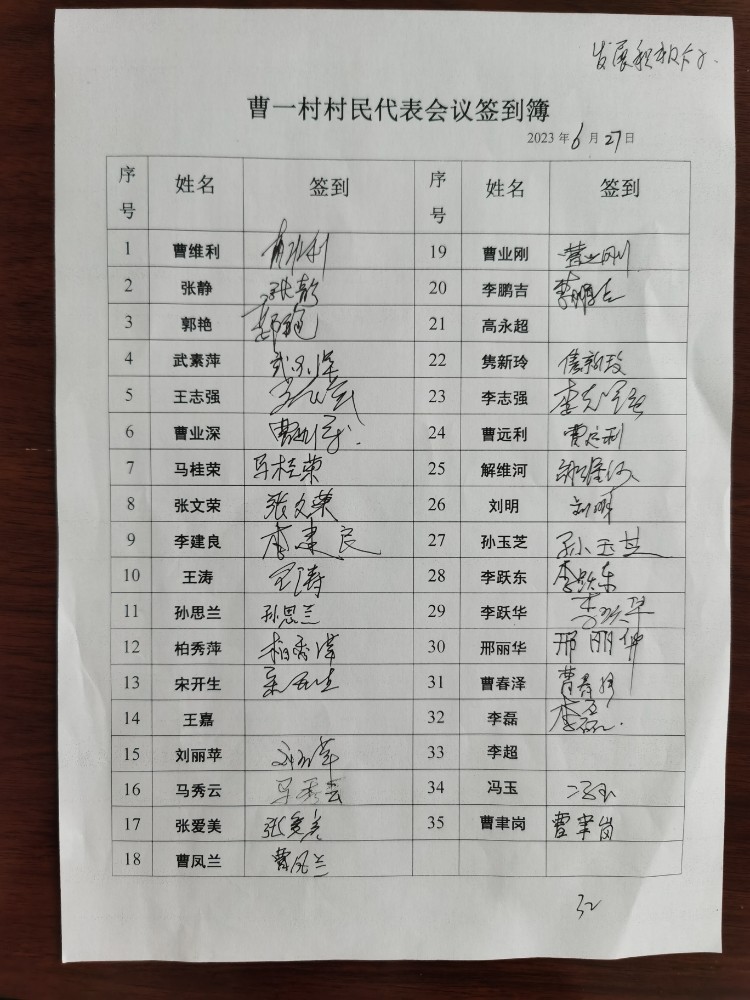 发展积极分子
曹一村村民代表会议签到簿
2023 年 6 月 27 日
序号 姓名 签到 序号 姓名 签到
1 曹维利 曹维利 19 曹业刚 曹业刚
2 张静 张静 20 李鹏吉 李鹏吉
3 郭艳 郭艳 21 高永超
4 武素萍 武素萍 22 隽新玲 隽新玲
5 王志强 王志强 23 李志强 李志强
6 曹业深 曹业深 24 曹远利 曹远利
7 马桂荣 马桂荣 25 解维河 解维河
8 张文荣 张文荣 26 刘明 刘明
9 李建良 李建良 27 孙玉芝 孙玉芝
10 王涛 王涛 28 李跃东 李跃东
11 孙思兰 孙思兰 29 李跃华 李跃华
12 柏秀萍 柏秀萍 30 邢丽华 邢丽华
13 宋开生 宋开生 31 曹春泽 曹春泽
14 王嘉 32 李磊 李磊
15 刘丽苹 刘丽苹 33 李超
16 马秀云 马秀云 34 冯玉 冯玉
17 张爱美 张爱美 35 曹聿岗 曹聿岗
18 曹凤兰 曹凤兰
32